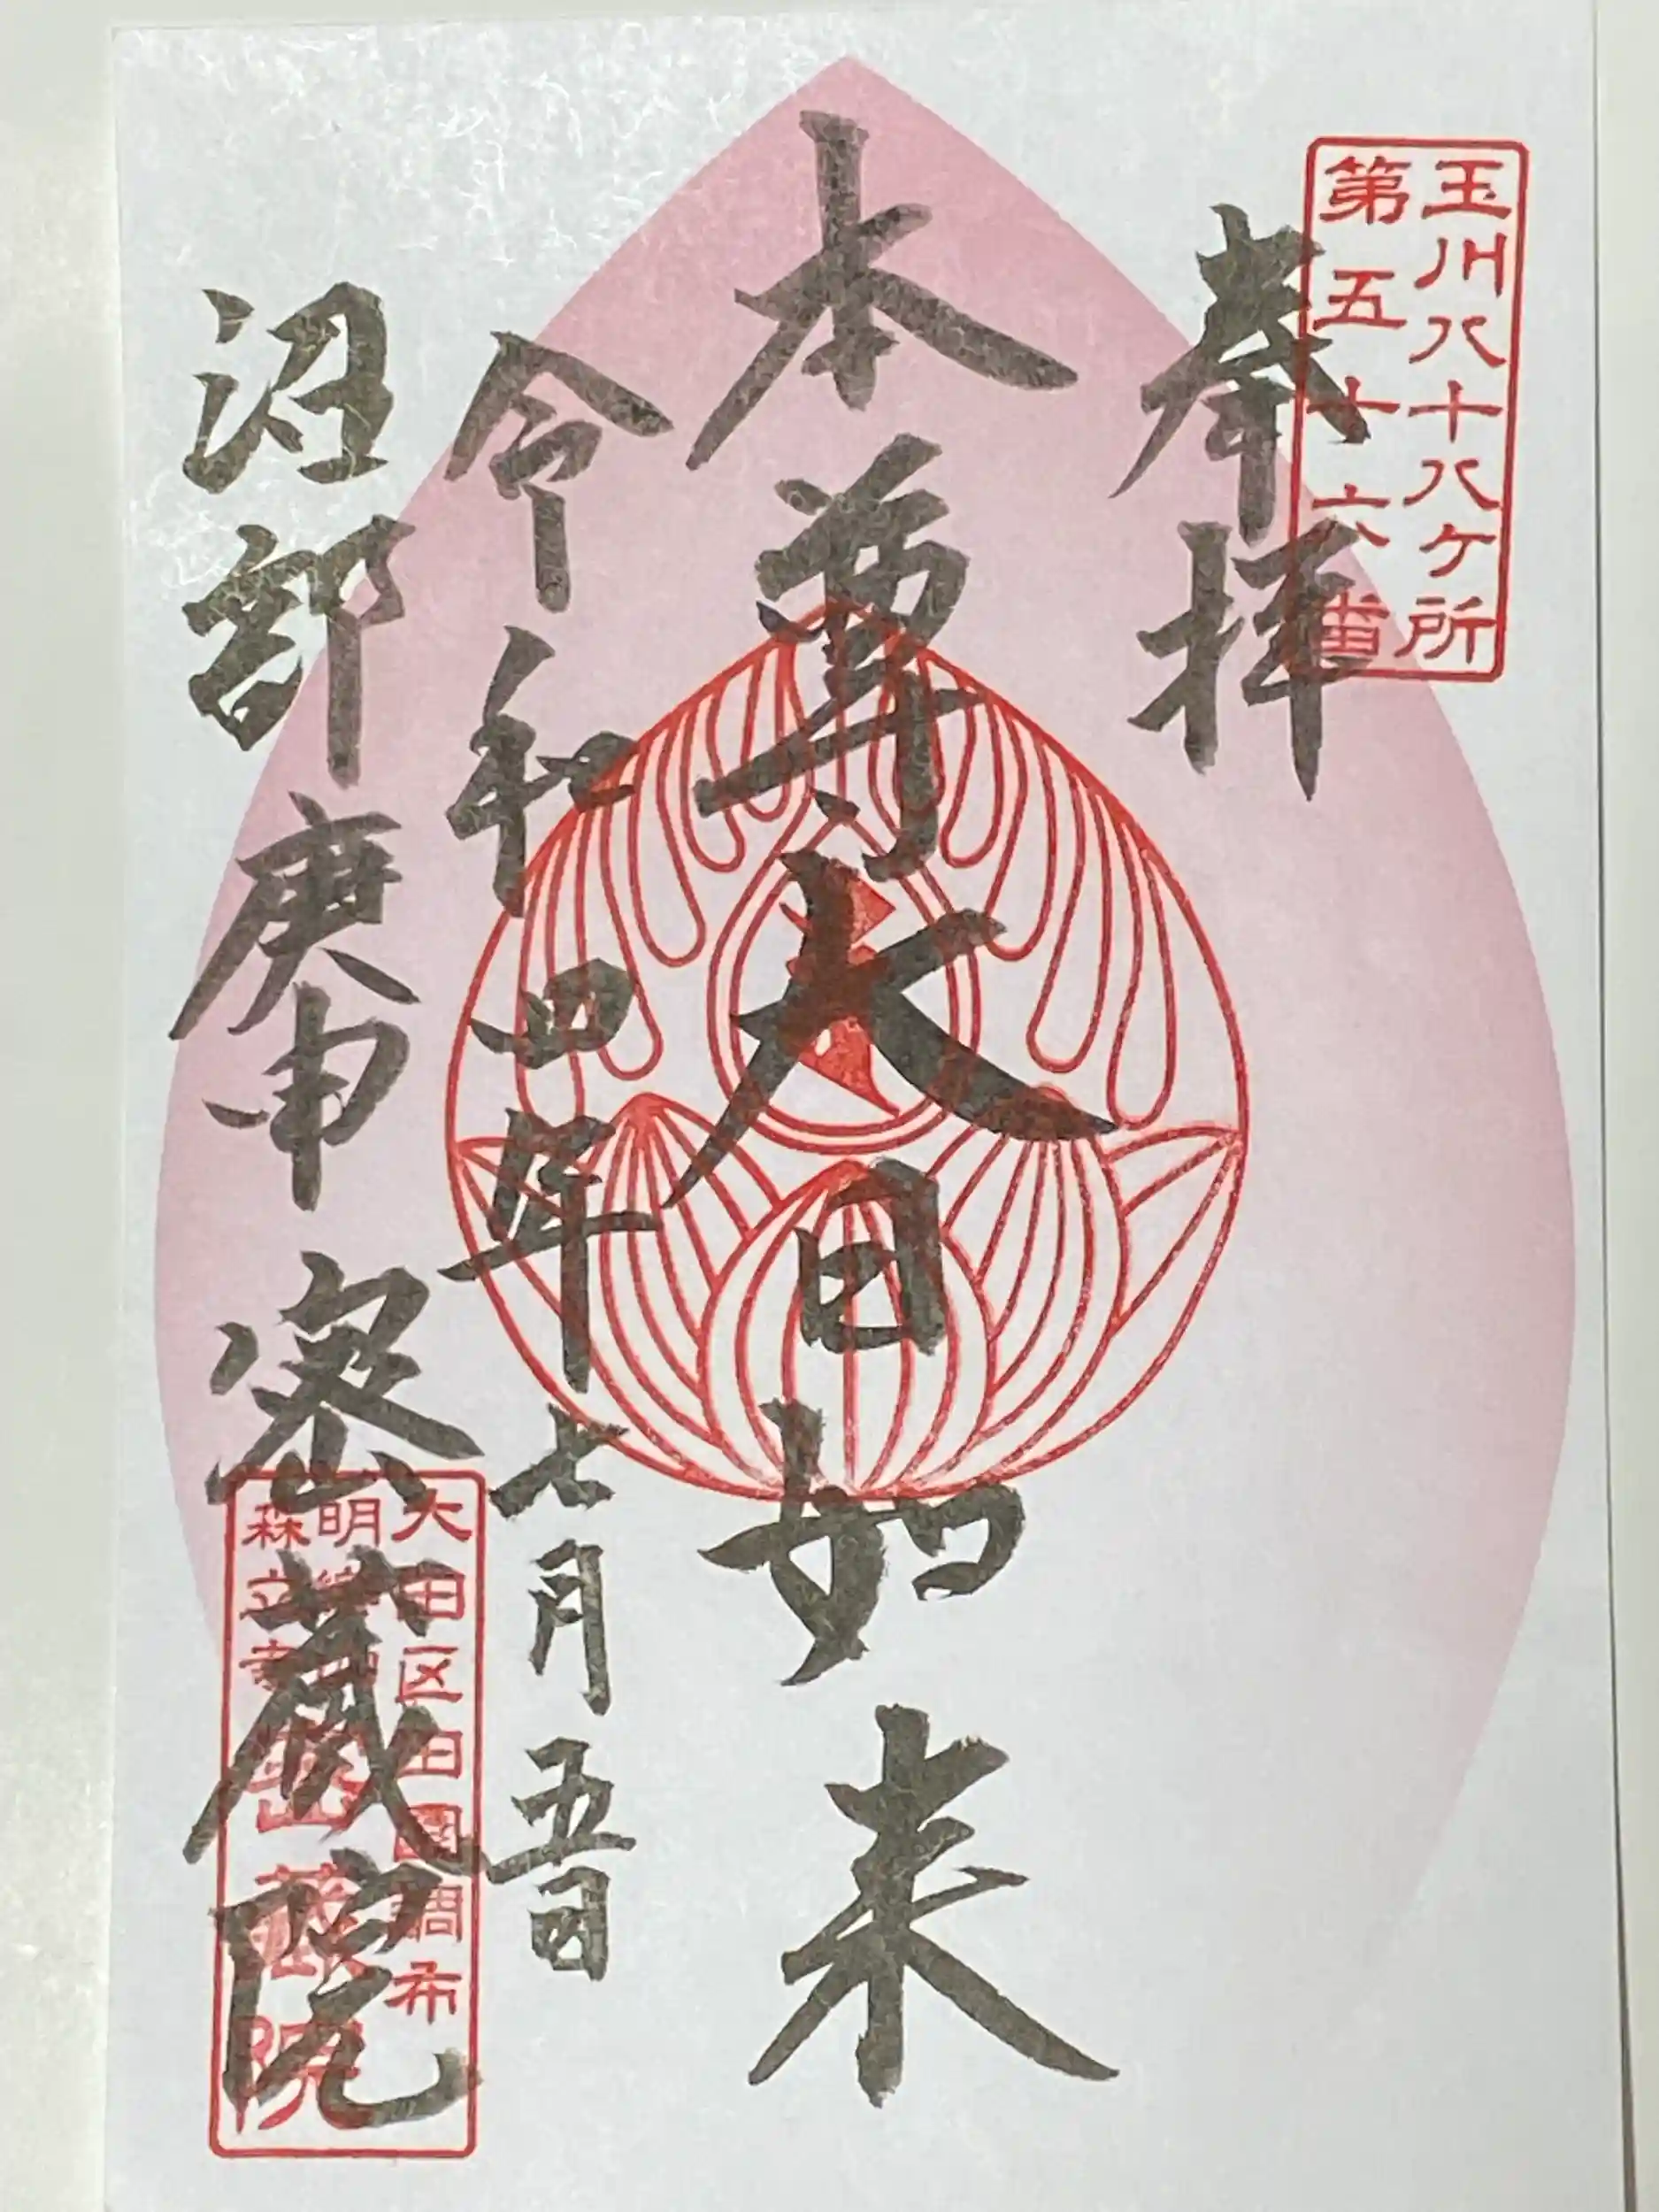 玉川八十八ケ所
第五十六番
奉拝
本尊大日如来
令和四年七月五日
沼部庚申密蔵院
大田区田園調布
明
森立
密蔵院